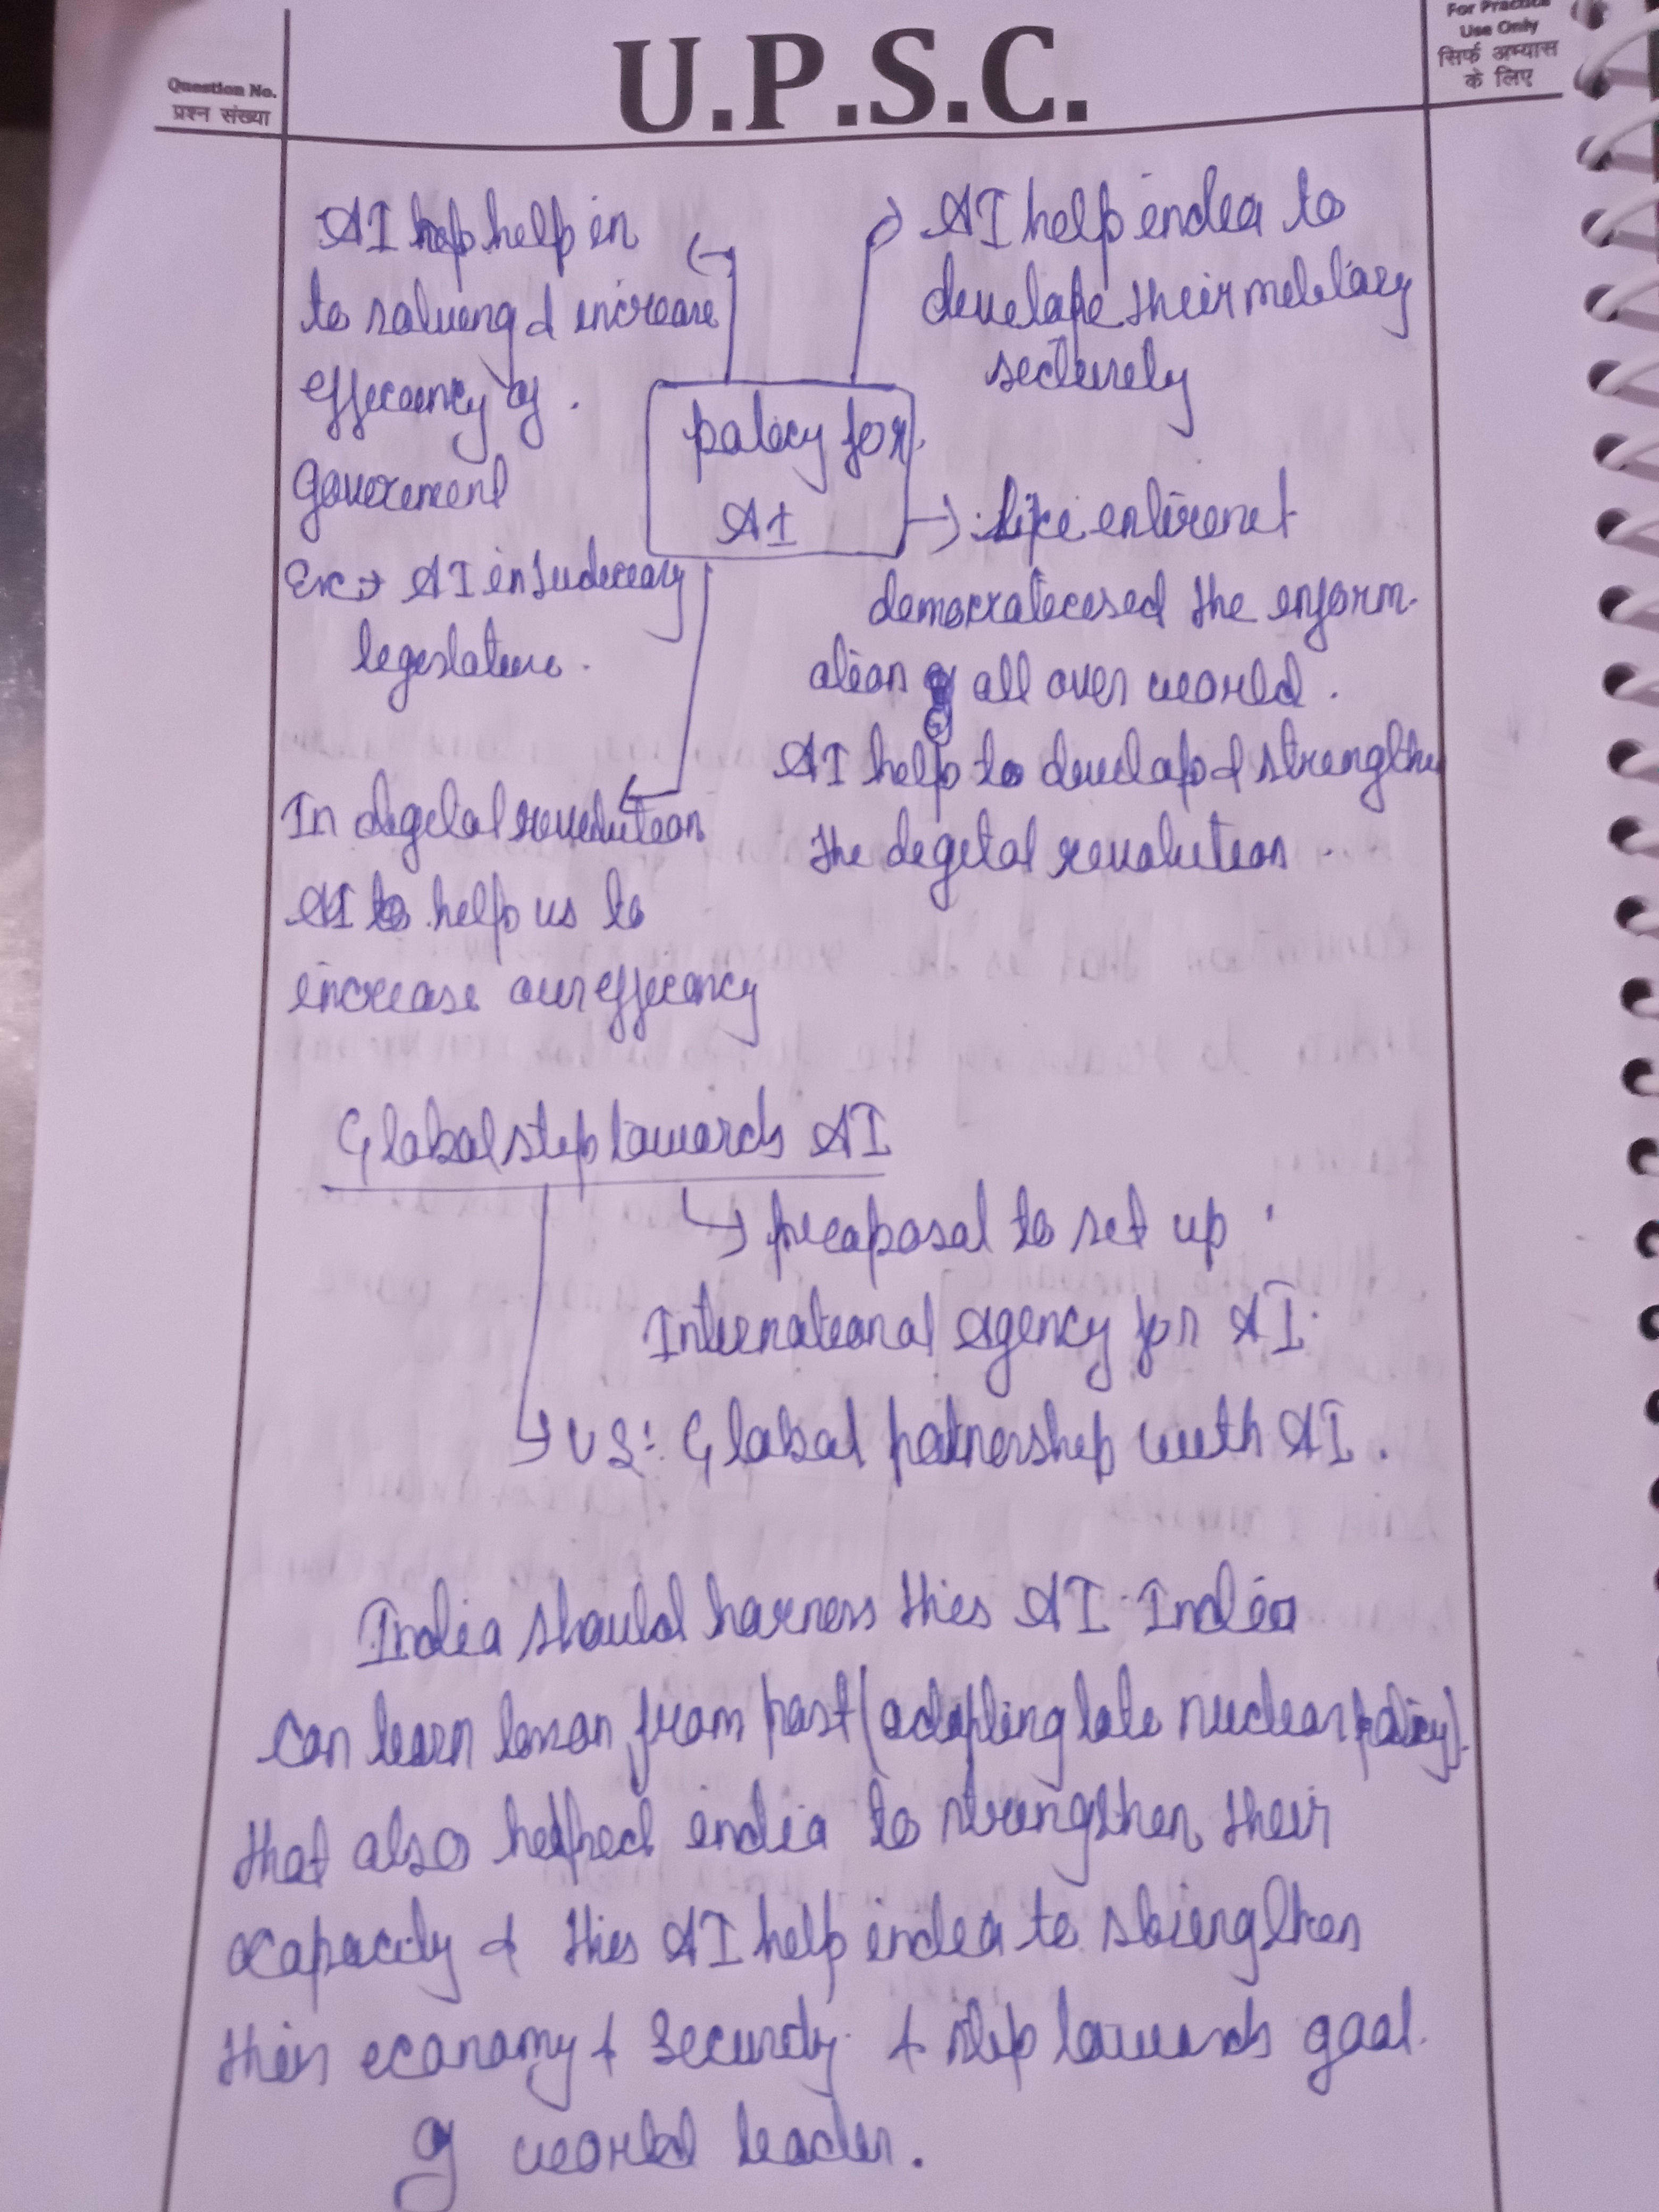 Question No.
प्रश्न संख्या
U.P.S.C.
For Practice
Use Only
सिर्फ अभ्यास
के लिए
AI help in
to solving & increase
efficency of.
government
Ex:→ AI in Judiciary
legislature.
AI help india to
develope their military
secturely
policy for
AI
Like intirenet
democraticised the inform-
ation all over world.
AI help to develop & strengthen
the digital revolution.
In digital revolution
AI to help us to
increase our efficency
Global step towards AI
→ preoposal to set up
International Agency for AI.
→ US: Global patnership with AI.
India should harness this AI. India
can learn lesson from past (adopting late nuclear policy).
that also helped india to strengthen their
capacity & this AI help india to strengthen
their economy & Security & step towards goal
of world leader.